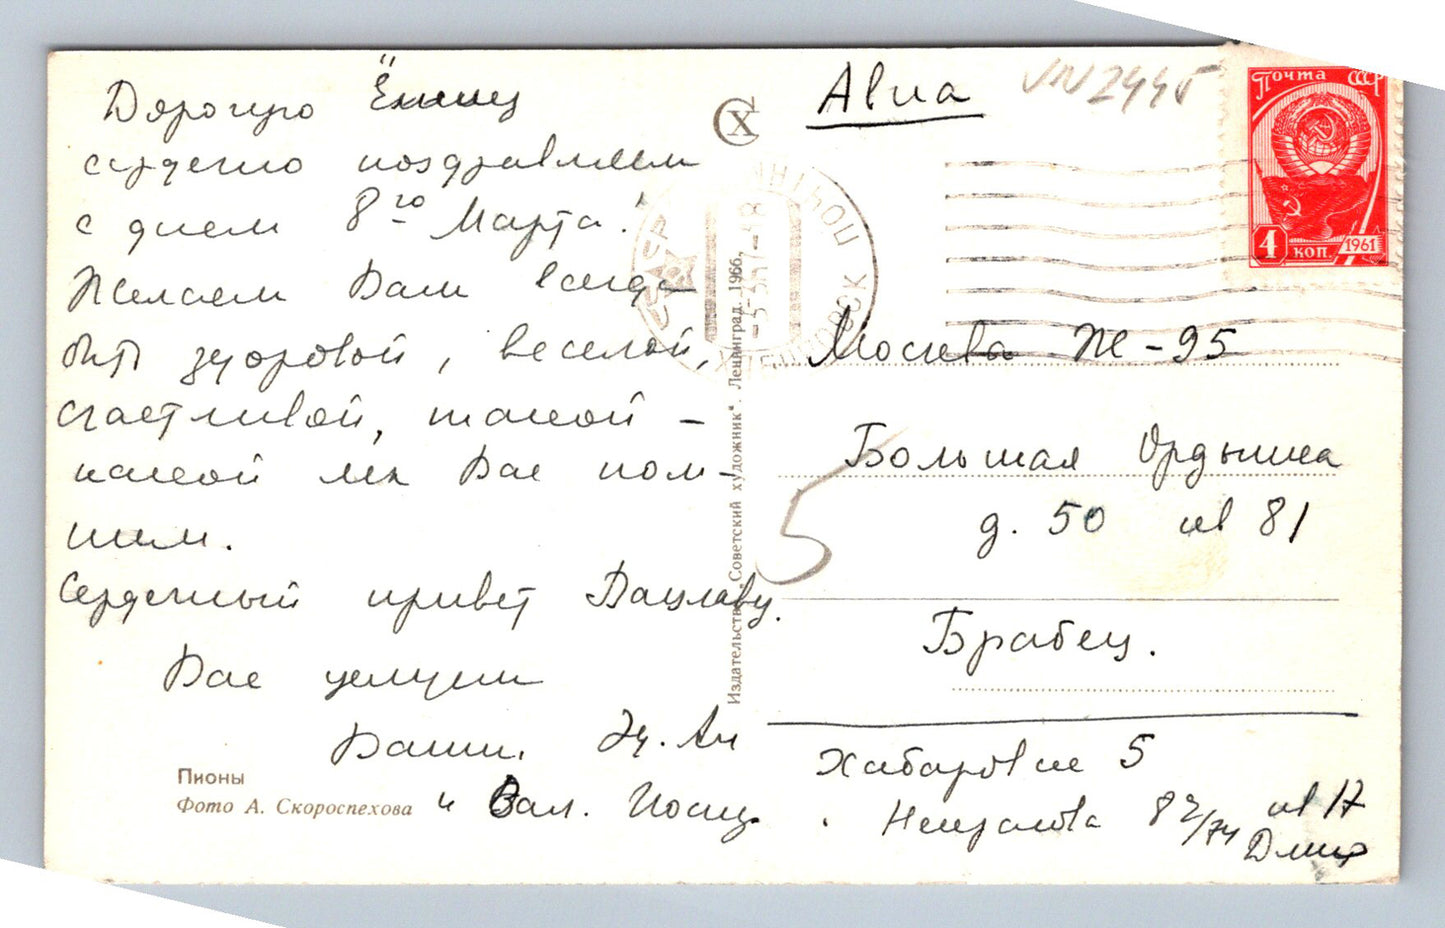 Дорогую
сердечно поздравляем
с днем 8го Марта!
Желаем Вам всегда
быть здоровой, веселой,
счастливой, такой –
какой мы Вас пом-
ним.
Сердечный привет Вацлаву.
Вас целуем
Ваши.
и Вал.
Пионы
Фото А. Скороспехова
Издательство „Советский художник". Ленинград. 1966.
СХ
Авиа
Почта СССР
4 коп. 1961
Москва Ж-95
Большая Ордынка
д. 50 кв 81
5
Брабец.
Хабаровск 5
кв 17